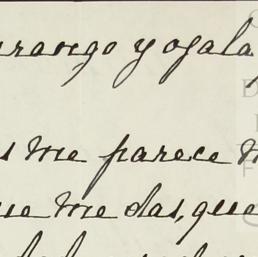 urango y ojala
s me parece
ue me das, que